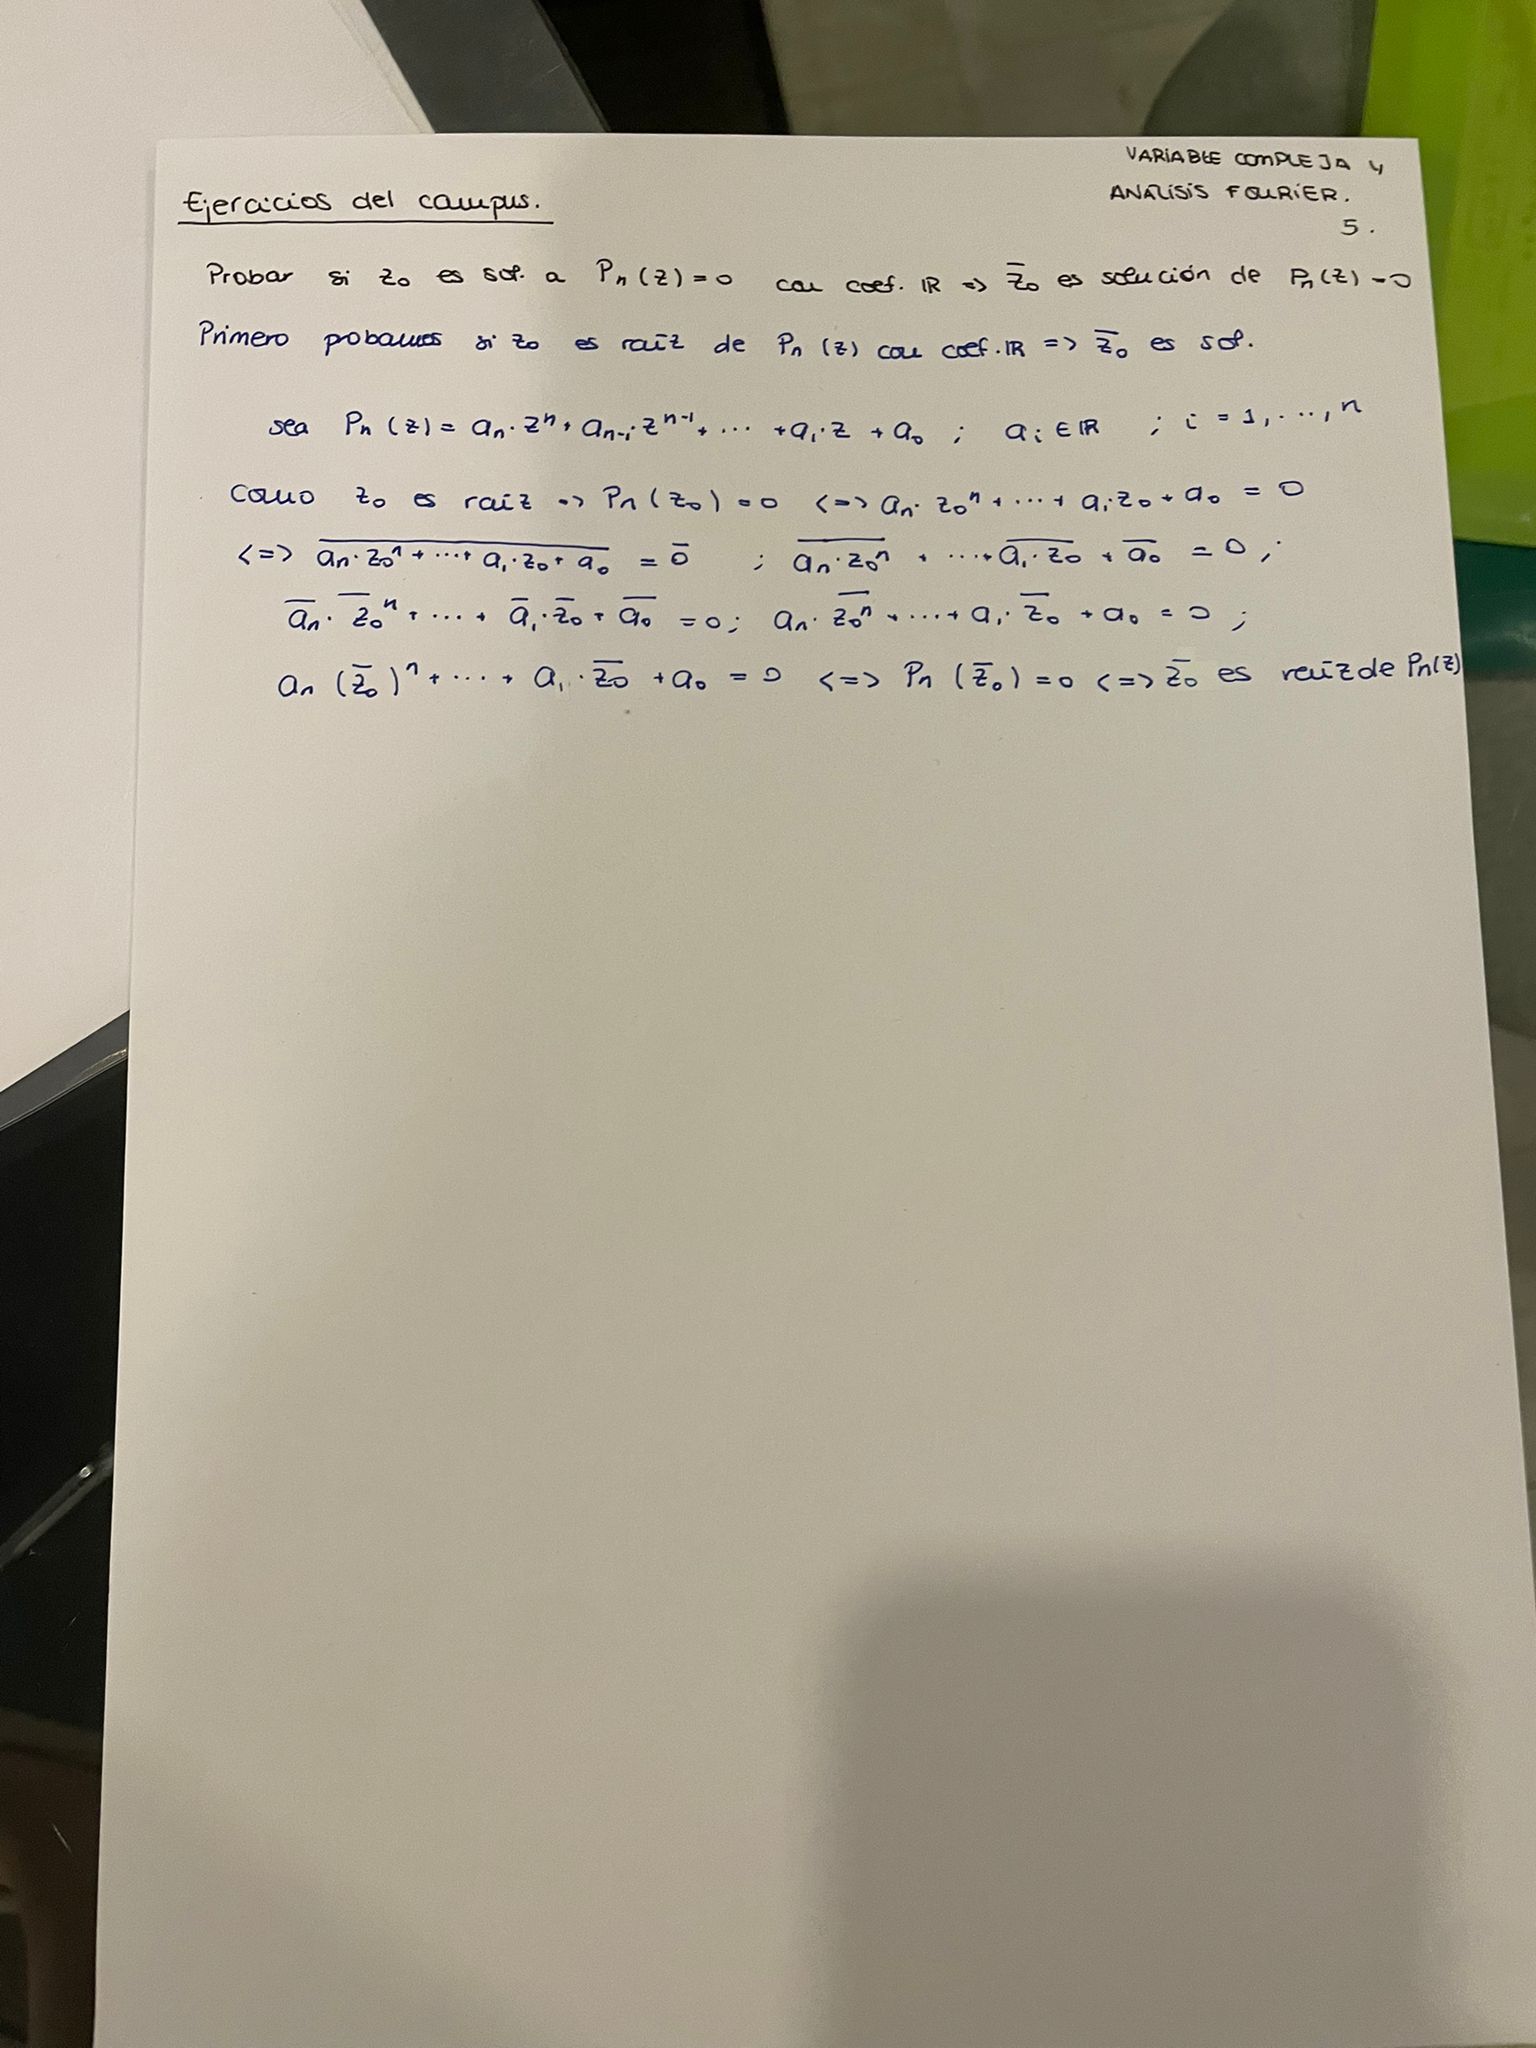 VARIABLE COMPLEJA Y
ANALISIS FOURIER.
5.
Ejercicios del campus.
Probar si z₀ es sol. a Pₙ(z)=0 con coef. IR => z̄₀ es solución de Pₙ(z)=0
Primero probamos si z₀ es raíz de Pₙ(z) con coef. IR => z̄₀ es sol.
sea Pₙ(z) = aₙ·zⁿ + aₙ₋₁·zⁿ⁻¹ + ... + a₁·z + a₀ ; aᵢ ∈ IR ; i = 1, ..., n
Como z₀ es raíz => Pₙ(z₀) = 0 <=> aₙ·z₀ⁿ + ... + a₁·z₀ + a₀ = 0
<=> \overline{aₙ·z₀ⁿ + ... + a₁·z₀ + a₀} = \overline{0} ; \overline{aₙ·z₀ⁿ} + ... + \overline{a₁·z₀} + \overline{a₀} = 0 ;
\overline{aₙ}·\overline{z₀}ⁿ + ... + \overline{a₁}·\overline{z₀} + \overline{a₀} = 0 ; aₙ·\overline{z₀ⁿ} + ... + a₁·\overline{z₀} + a₀ = 0 ;
aₙ(\overline{z₀})ⁿ + ... + a₁·\overline{z₀} + a₀ = 0 <=> Pₙ(\overline{z₀}) = 0 <=> \overline{z₀} es raíz de Pₙ(z)